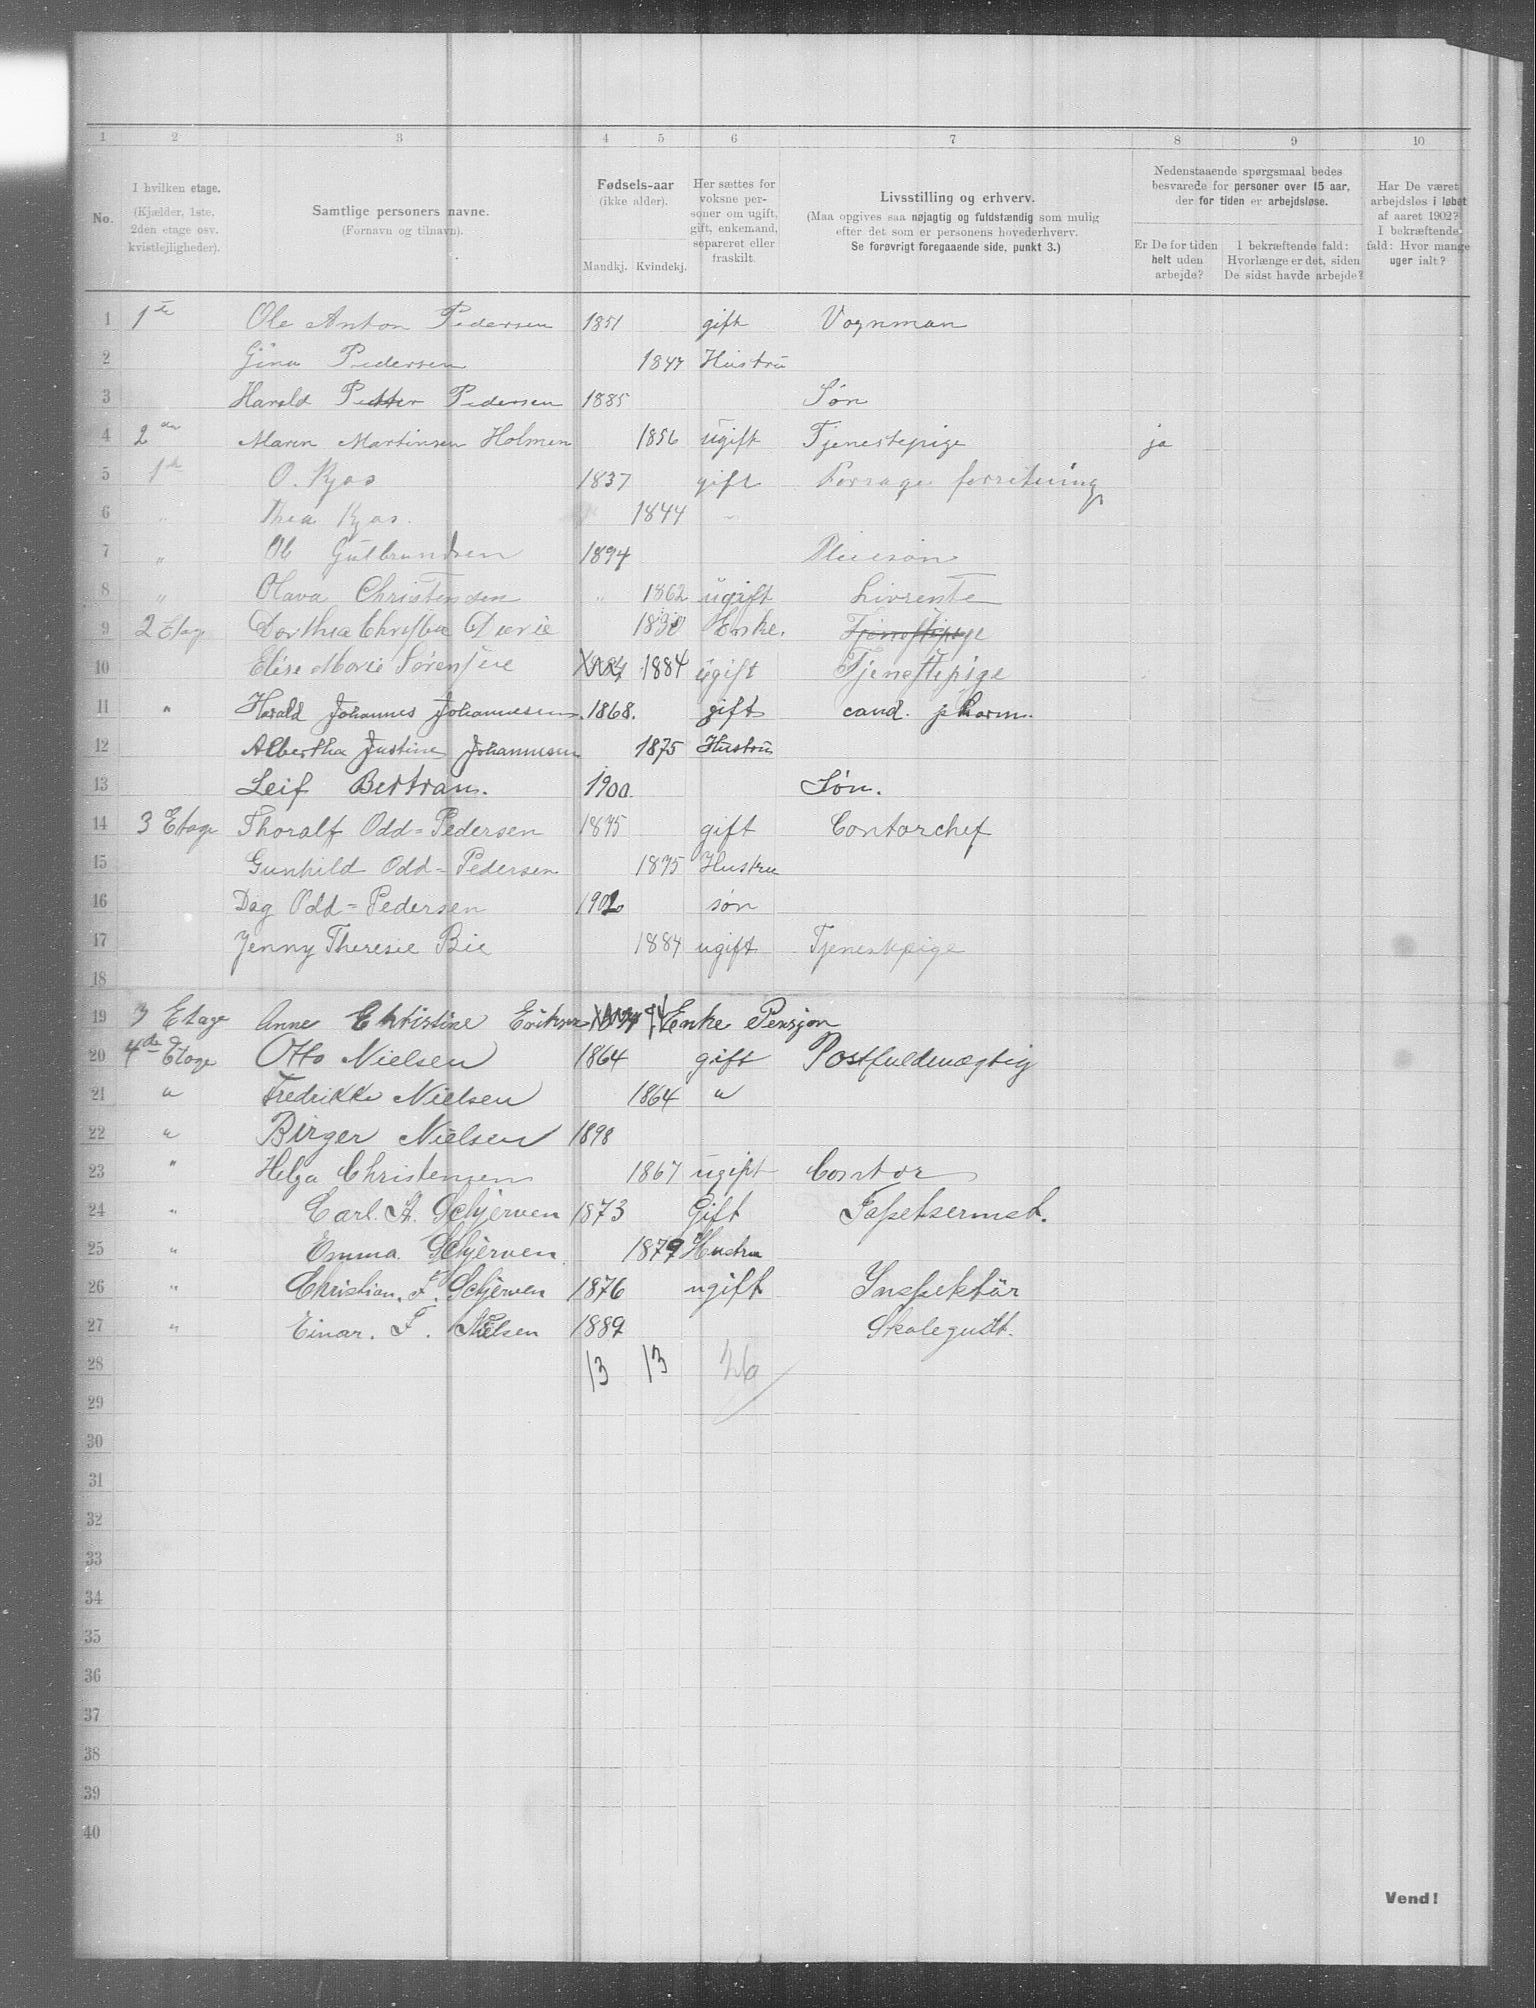 1 2 3 4 5 6 7 8 9 10
No.
I hvilken etage.
(Kjælder, 1ste, 2den etage osv. kvistlejligheder).
Samtlige personers navne.
(Fornavn og tilnavn).
Fødsels-aar
(ikke alder).
Mandkj. Kvindekj.
Her sættes for voksne personer om ugift, gift, enkemand, separeret eller fraskilt.
Livsstilling og erhverv.
(Maa opgives saa nøjagtig og fuldstændig som mulig efter det som er personens hovederhverv.
Se forøvrigt foregaaende side, punkt 3.)
Nedenstaaende spørgsmaal bedes besvarede for personer over 15 aar, der for tiden er arbejdsløse.
Er De for tiden helt uden arbejde?
I bekræftende fald: Hvorlænge er det, siden De sidst havde arbejde?
Har De været arbejdsløs i løbet af aaret 1902? I bekræftende fald: Hvor mange uger ialt?
1 1te Ole Anton Pedersen 1851 gift Vognman
2 Gina Pedersen 1847 Hustru
3 Harald Petter Pedersen 1885 Søn
4 2den Maren Martinsen Holmen 1856 ugift Tjenestepige ja
5 1te O. Kjos 1837 gift Forrage forretning
6 " Thea Kjos. 1844 "
7 " Ole Gulbrandsen 1894 Pleiesøn
8 " Olava Christensen " 1862 ugift Livrente
9 2 Etage Dorthea 1830 Enke. Tjenestepige
10 Elise Marie Sørensen 1884 1884 ugift Tjenestepige
11 " Harald Johannes Johannesen. 1868. gift cand. pharm.
12 Albertha Justine Johannesen 1875 Hustru
13 Leif Bertran. 1900. Søn.
14 3 Etage Thoralf Odd-Pedersen 1875 gift Contorchef
15 Gunhild Odd-Pedersen 1875 Hustru
16 Dag Odd-Pedersen 1902 søn
17 Jenny Theresie Bie 1884 ugift Tjenestepige
18
19 3 Etage Anne Christine Eriksen 44 Enke Pensjon
20 4de Etage Otto Nielsen 1864 gift Postfuldmægtig
21 " Fredrikke Nielsen 1864 "
22 " Birger Nielsen 1898
23 " Helga Christensen 1867 ugift Contor
24 " Carl. A. Schjerven 1873 Gift Tapetsermst.
25 " Emma. Schjerven 1879 Hustru
26 " Christian. F. Schjerven 1876 ugift Inspektör
27 " Einar. F. Nielsen 1889 Skolegudt.
28 13 13 26
29
30
31
32
33
34
35
36
37
38
39
40
Vend!